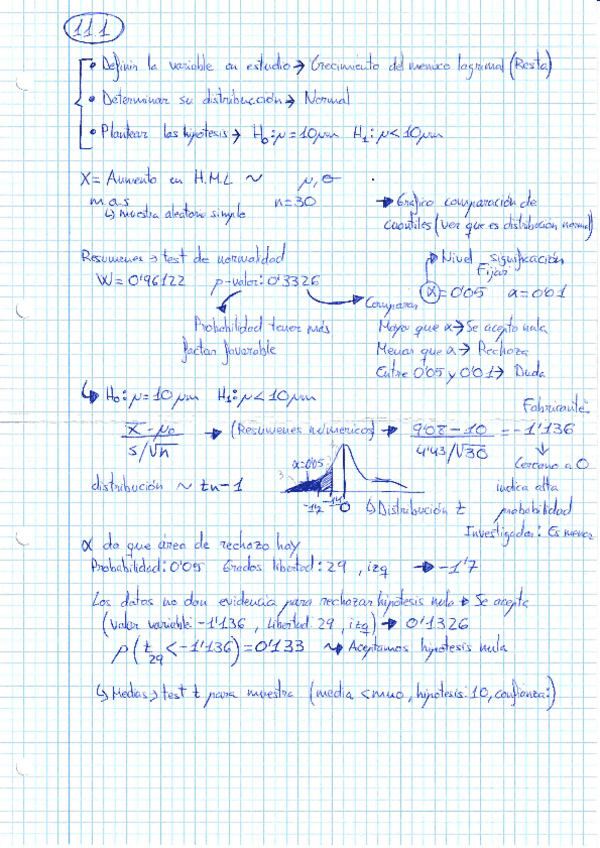 11.1
• Definir la variable en estudio → Crecimiento del menisco lagrimal (Resta)
• Determinar su distribucción → Normal
• Plantear las hipotesis → H₀: μ = 10μm H₁: μ < 10μm
X = Aumento en H.M.L ~ μ, σ
m.a.s n=30 → Grafico comparación de
↳ muestra aleatoria simple cuantiles (ver que es distribucion normal)
Resumenes → test de normalidad
W = 0'96122 p-valor: 0'3326
Nivel significación
Fijar
α = 0'05 α = 0'01
Comparan
Probabilidad tener más
factor favorable
Mayor que α → Se acepta nula
Menor que α → Rechaza
Entre 0'05 y 0'01 → Duda
↳ H₀: μ = 10 μm H₁: μ < 10 μm
x̄ - μ₀ / s/√n → (Resumenes numericos) → 9'08 - 10 / 4'43/√30 = -1'136
Fabricante:
↓
Cercano a 0
indica alta
probabilidad
Investigador: Es menor
distribución ~ tn-1
α=0'05
0
↳ Distribución t
α da que área de rechazo hay
Probabilidad: 0'05 Grados libertad: 29, izq → -1'7
Los datos no dan evidencia para rechazar hipótesis nula → Se acepta
(Valor variable: -1'136, libertad 29, izq) → 0'1326
p(t₂₉ < -1'136) = 0'133 ⇝ Aceptamos hipótesis nula
↳ Medias → test t para muestra (media < muo, hipotesis: 10, confianza:)